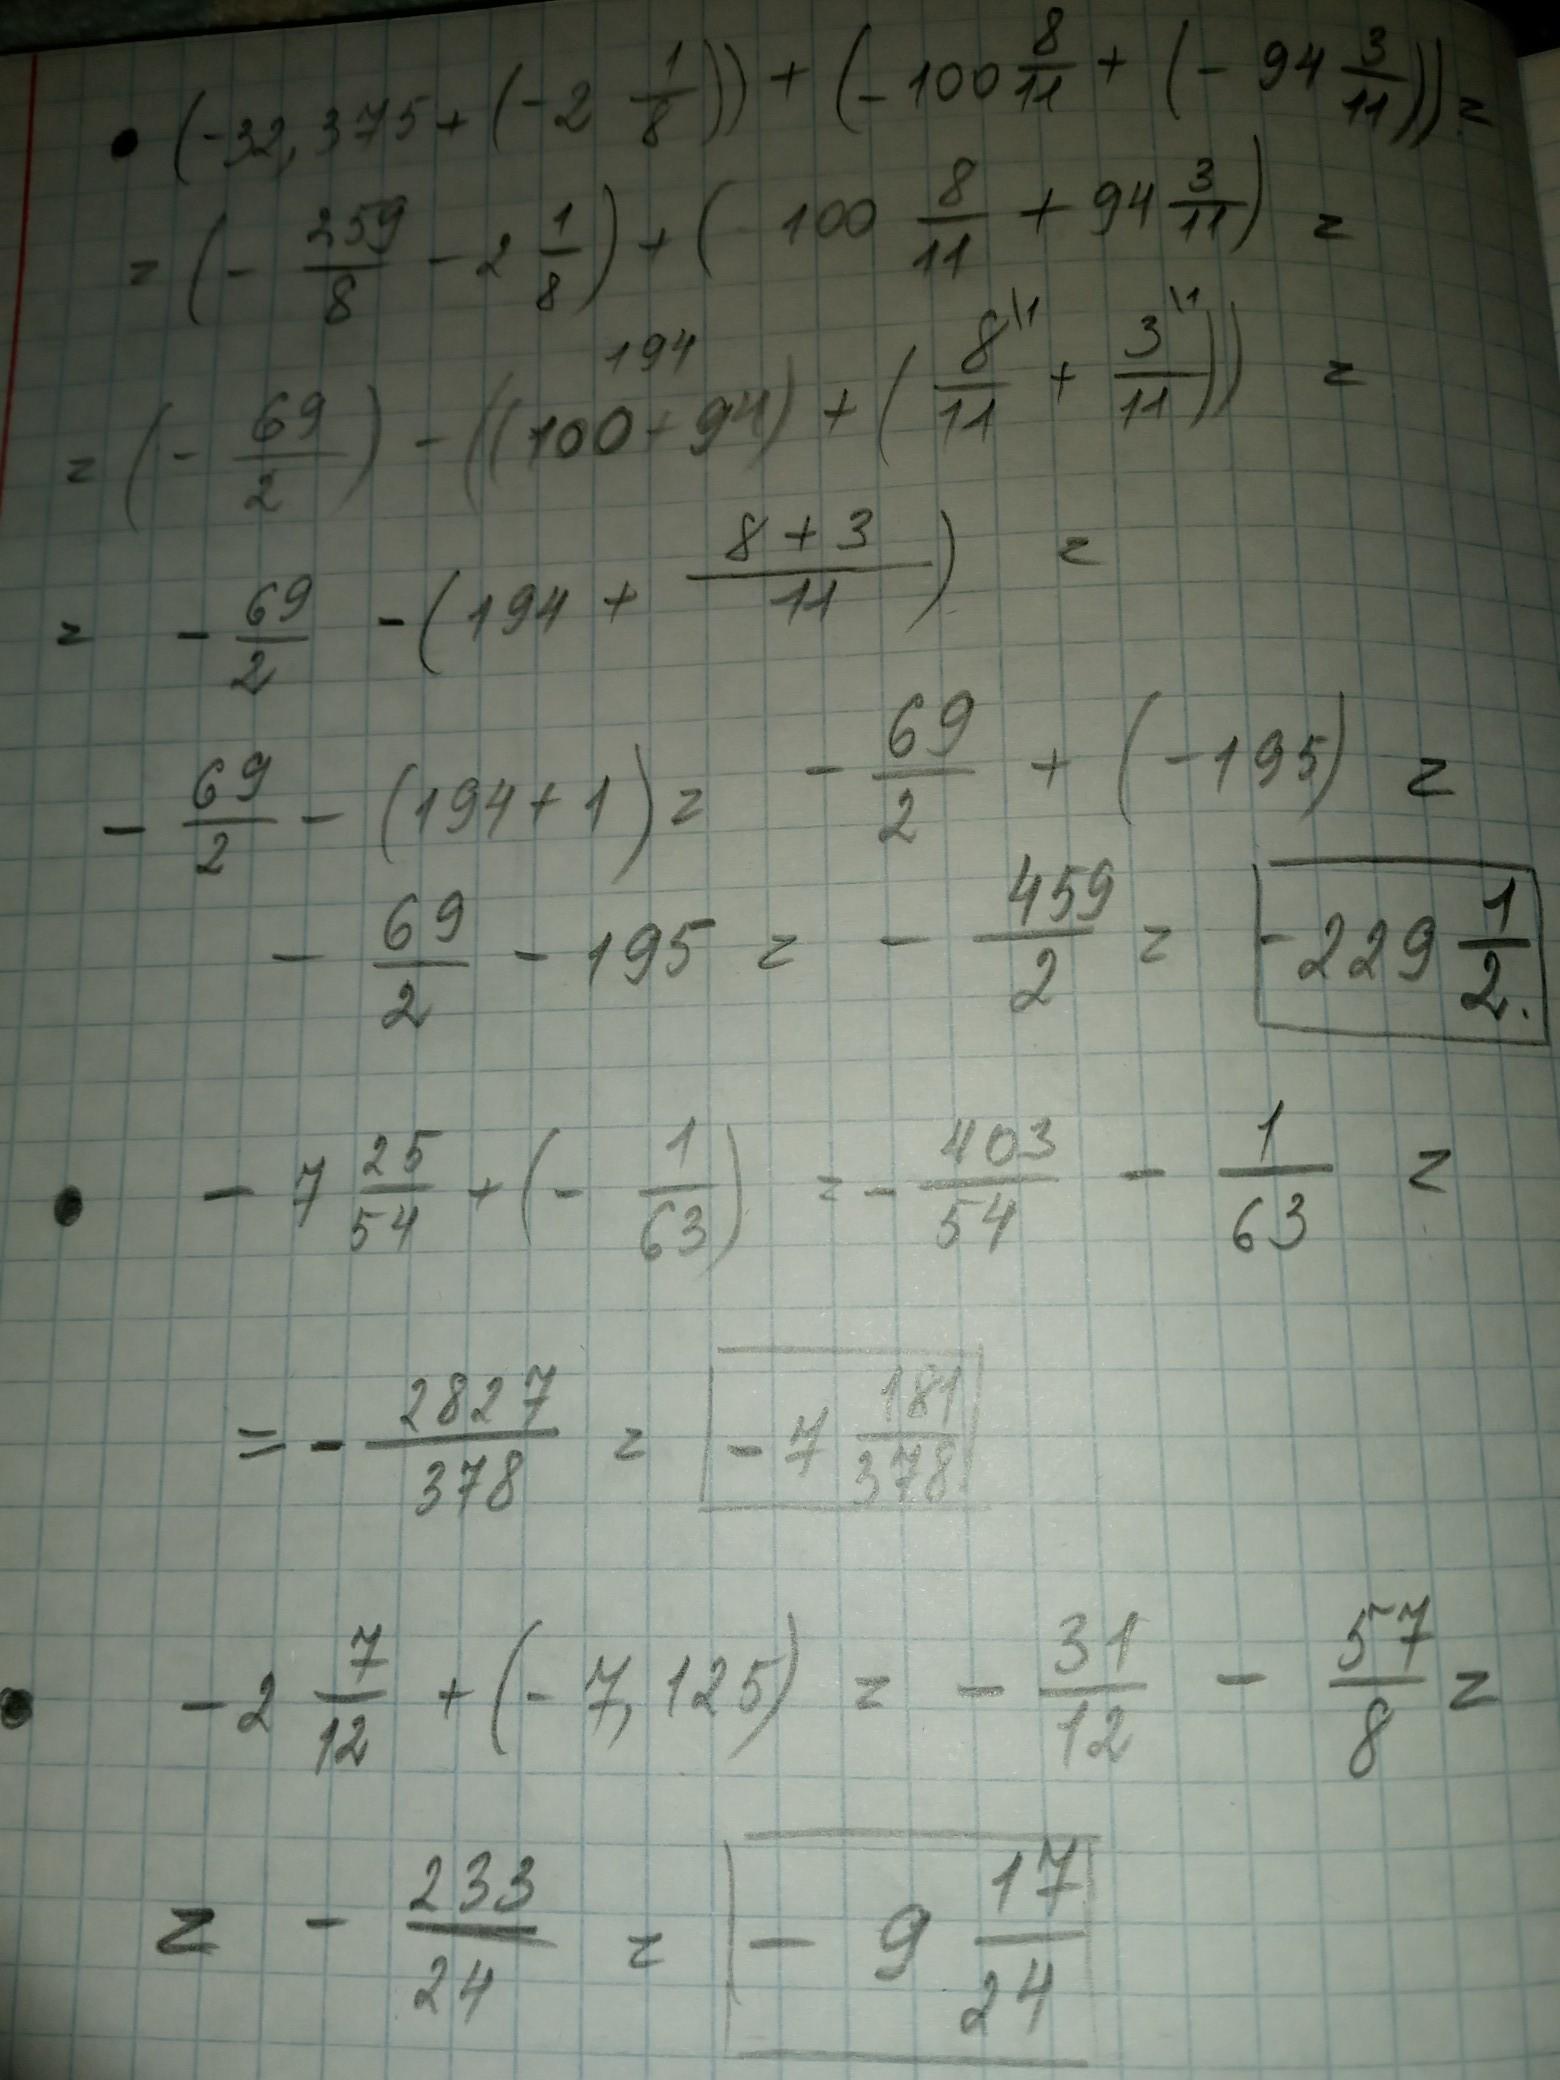 • (-32,375 + (-2 1/8)) + (-100 8/11 + (-94 3/11)) =
= (- 259/8 - 2 1/8) + ( 100 8/11 + 94 3/11) =
194
= (- 69/2) - ((100 + 94) + (8\1/11 + 3\1/11)) =
= - 69/2 - (194 + 8+3/11) =
- 69/2 - (194 + 1) = - 69/2 + (-195) =
- 69/2 - 195 = - 459/2 = -229 1/2.
• - 7 25/54 + (- 1/63) = - 403/54 - 1/63 =
= - 2827/378 = - 7 181/378
• - 2 7/12 + (- 7,125) = - 31/12 - 57/8 =
= - 233/24 = - 9 17/24